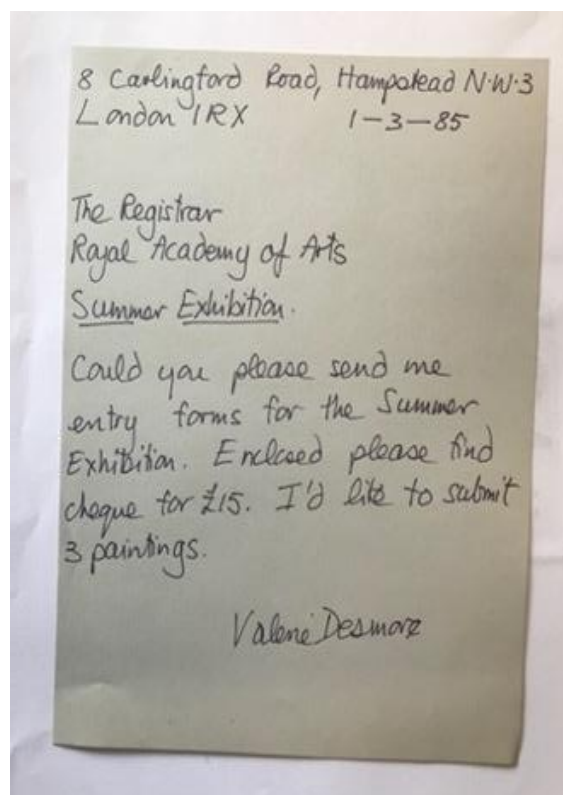 8 Carlingford Road, Hampstead N.W.3
London 1RX 1-3-85
The Registrar
Royal Academy of Arts
Summer Exhibition.
Could you please send me
entry forms for the Summer
Exhibition. Enclosed please find
cheque for £15. I'd like to submit
3 paintings.
Valerie Desmore